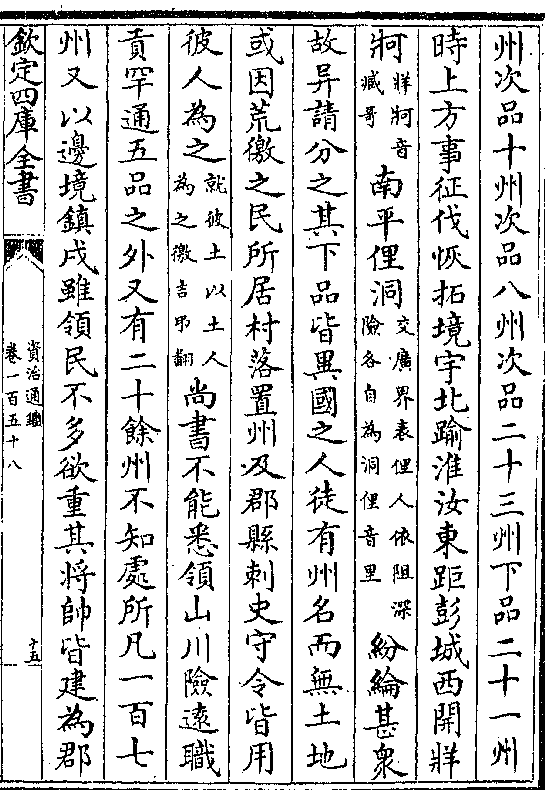 州次品十州次品八州次品二十三州下品二十一州
時上方事征伐恢拓境宇北踰淮汝東距彭城西開牂
牁牂牁音臧哥南平俚洞交廣界表俚人依阻深險各自為洞俚音里紛綸甚衆
故异請分之其下品皆異國之人徒有州名而無土地
或因荒徼之民所居村落置州及郡縣刺史守令皆用
彼人為之就彼土以土人為之徼吉弔翻尚書不能悉領山川險遠職
貢罕通五品之外又有二十餘州不知處所凡一百七
州又以邊境鎮戍雖領民不多欲重其將帥皆建為郡
欽定四庫全書
資治通鑑
卷一百五十八
十五